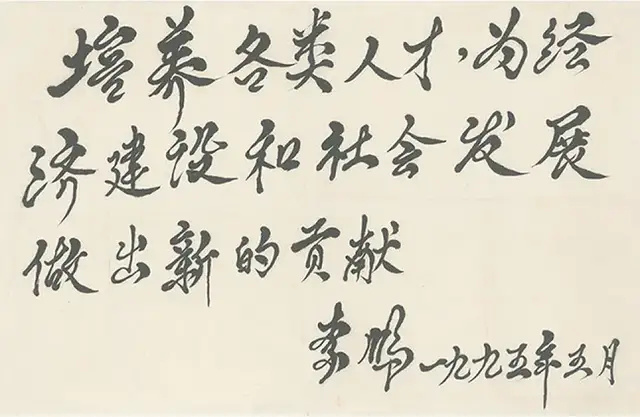 培养各类人才，为经
济建设和社会发展
做出新的贡献
李鹏 一九九五年五月